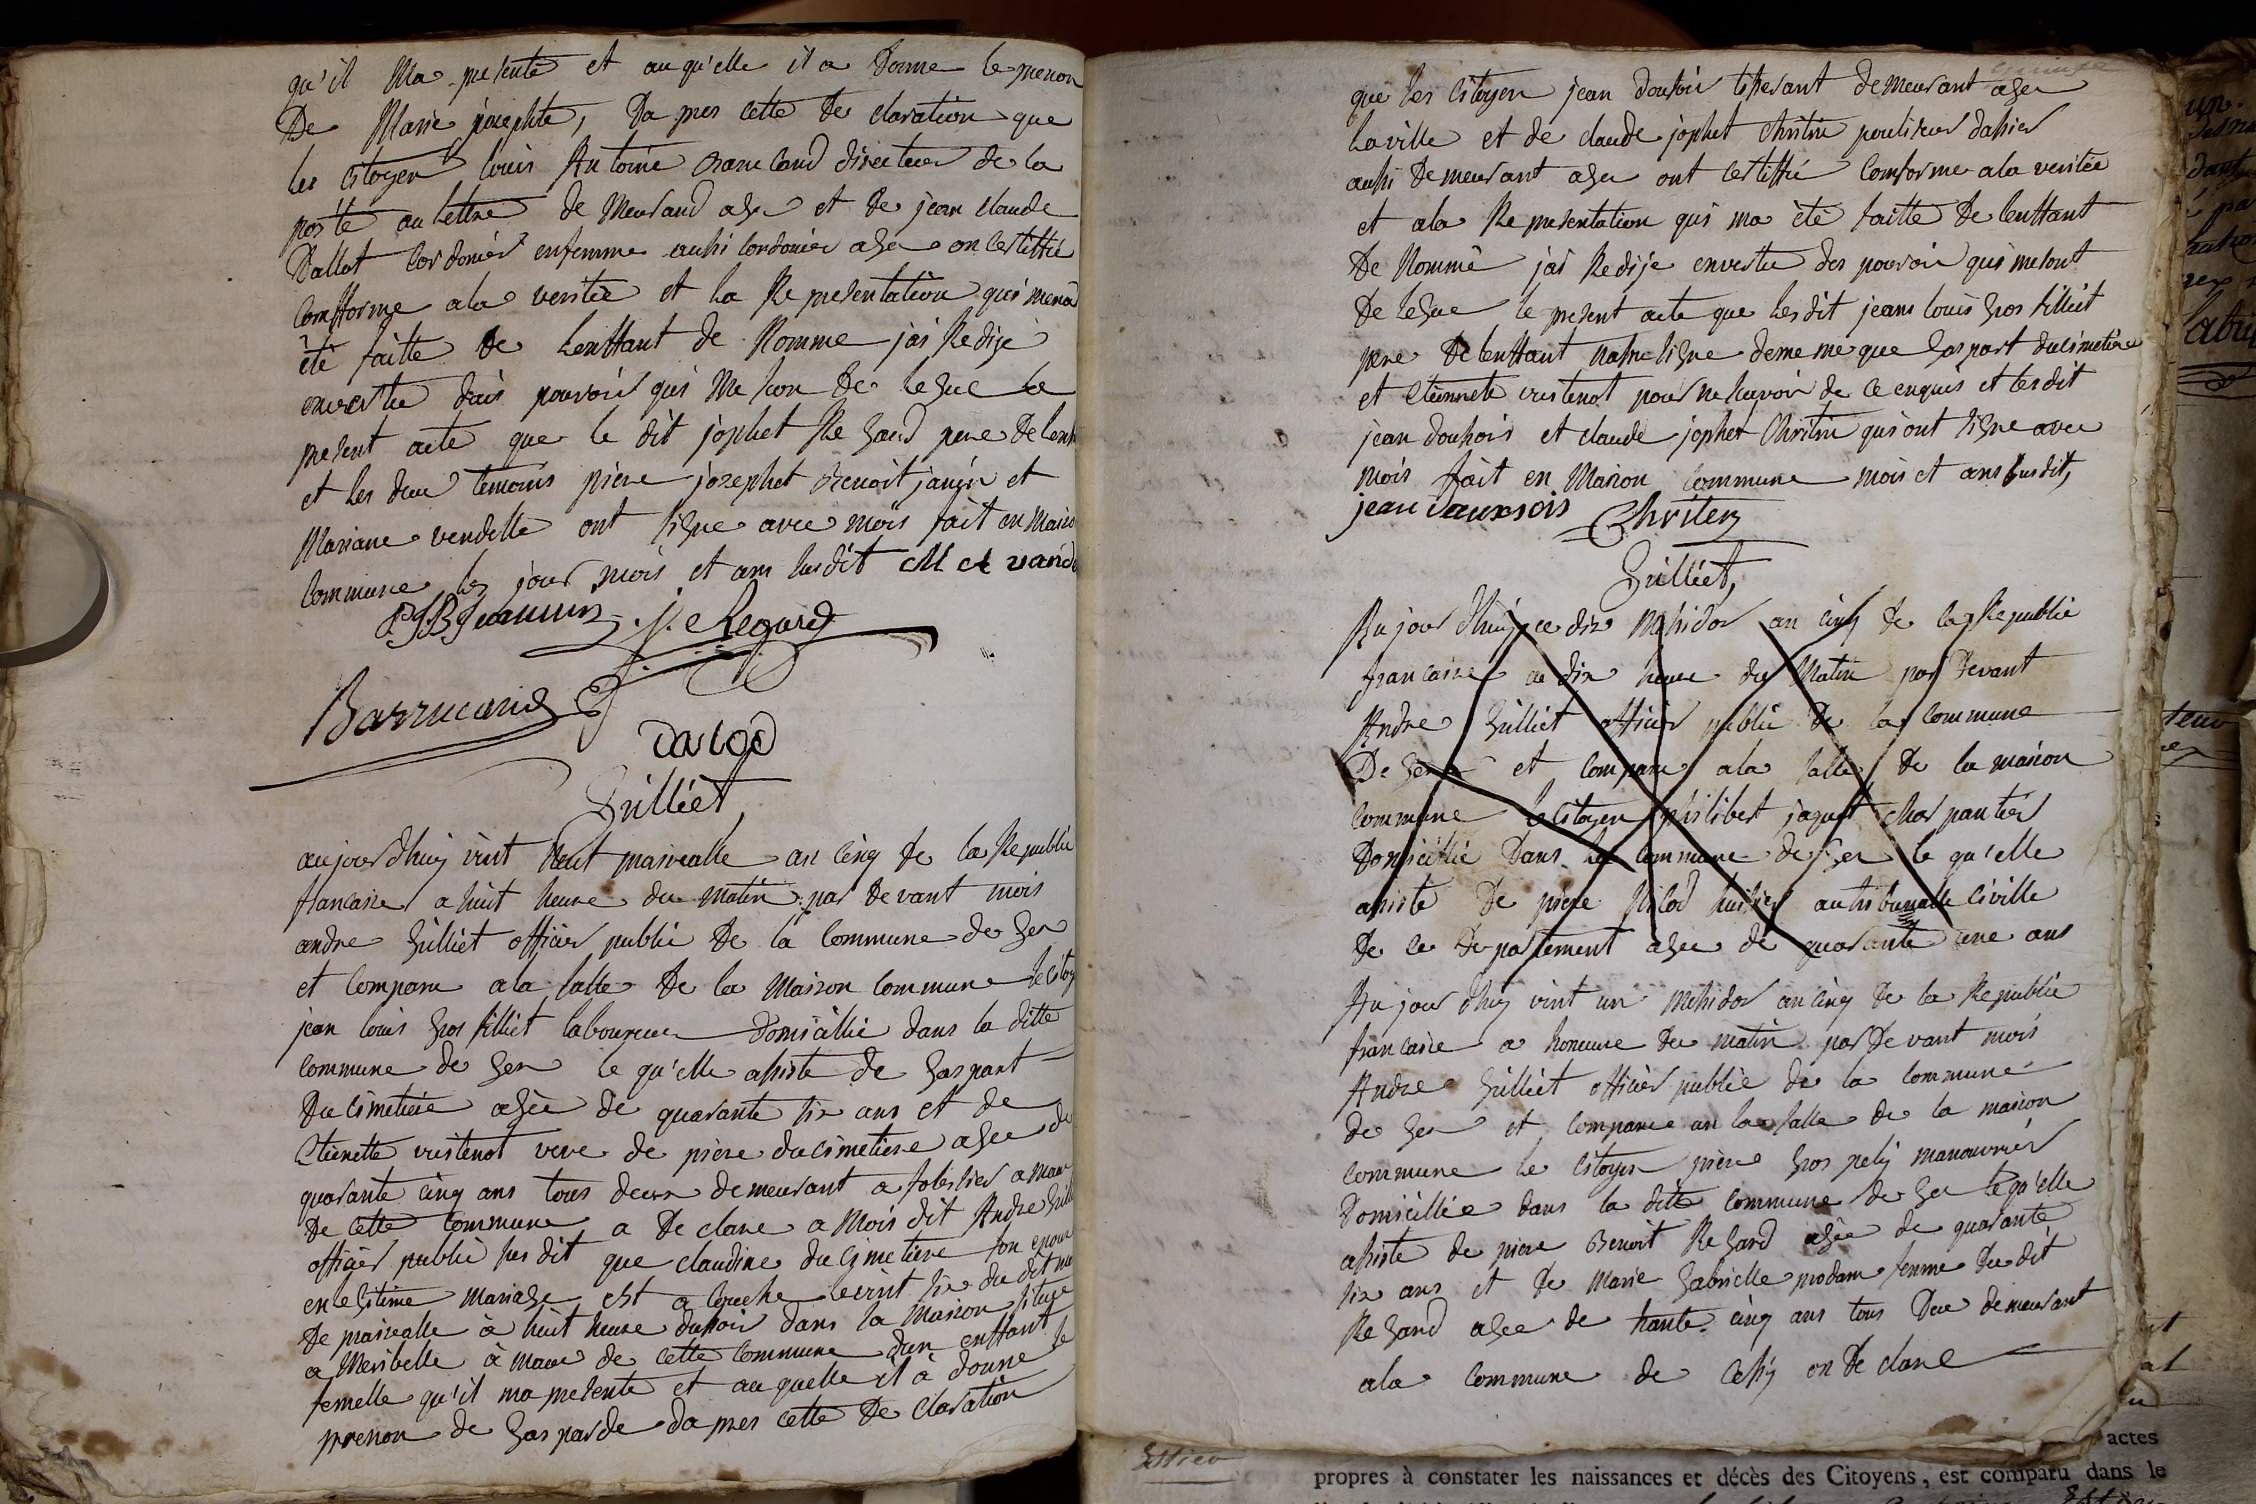 qu'il Ma presenté et au qu'elle il a donne le prenon
De Marie josephte, Da pres cette De claration que
les Citoyen louis Antoine Barucand directeur de la
poste au lettre de Meusaud agé et De jean claude
Dallot Cordonier enfemme aussi Cordonier agé on certiffié
Comfforme ala verité et la Representation qui mena
été faitte De lenffant de Nomme jai Redigé
envertu dais pouvoir qui Me son De legué le
present acte que le dit josphet Regaud pere De lenf
et les deux temoins piere josephet Benoit janin et
Mariane vendelle ont signe avec mois fait en Maiso
Commune les jour mois et ans susdit M A vand
P J B Jeannin J. C Regard
Barrucand
Dalod
Gilliet,
aujourdhuy vint neut prairealle an cinq de la Republi
francaise a huit heure du matin par devant mois
andre Gilliet officier public De la Commune de Gex
et Comparu ala salle De la Maison Commune le City
jean louis Gros filliet laboureur Domicillié dans la ditte
Commune de Gex le qu'elle assiste de Gaspart
Ducimetiere agée de quarante six ans et de
Etienette vristenot veve de piere ducimetiere agee de
quarante cinq ans tous deux demeurant a folestier a Maux
De cette Commune a De clare a Mois dit Andre Gilli
officier public susdit que claudine ducimetiere son epouse
en legitime Mariage est a couché le vint six du dit mois
De praireall à huit heure dusoir dans la Maison situye
a Meribelle à Maux de cette Commune dun enffant
femelle qu'il ma presente et au quelle il à donne le
prenon de Gasparde da pres cette De claration
que les Citoyen jean dousoir tisserant demeurant agex
laville et de claude josphet Christin poulisseur dassier
aussi Demeurant agex ont certiffié Comforme ala veritée
et ala Representation qui ma été faitte De lenffant
De Nommé jai Redijé envertu des pouvoir qui mesont
De legué le present acte que lesdit jean louis Gros filliet
pere De lenffant nasue signe deme me que Gaspart ducimetiere
et Etiennete vristenot pour ne savoir de ce enquis et lesdit
jean douhois et claude josphet Christin qui ont signe avec
mois fait en Maison Commune mois et ans susdit,
jean dauxsois Chriten
Gilliet,
Au jour dhuy ce dix Messidor an cinq de la Republi
francaise a dix heure du Matin par Devant
Andre Gilliet officier public De la Commune
De Gex et Comparu ala salle De la maison
Commune le Citoyen philibert jaquet charpantier
Domicillié Dans la Commune de Gex le qu'elle
assiste De piere huissier autribunalle Civille
De ce Departement agee de quarante une ans
Au jour dhuy vint un Messidor an cinq De la Republi
francaise a honzeure du matin par De vant mois
Andre Gilliet officier public de la Commune
de Gex et Comparu au la salle de la maison
Commune le Citoyen piere Gros pely manouvrier
Domicillié dans la ditte Commune de Gex le qu'elle
assiste de piere Benoit Regard agée de quarante
six ans et de Marie Gabrielle prodam femme du dit
Regard agee de trante cinq ans tous Due demeurant
ala Commune de Cessy on De clare
actes
propres à constater les naissances et décès des Citoyens, est comparu dans le